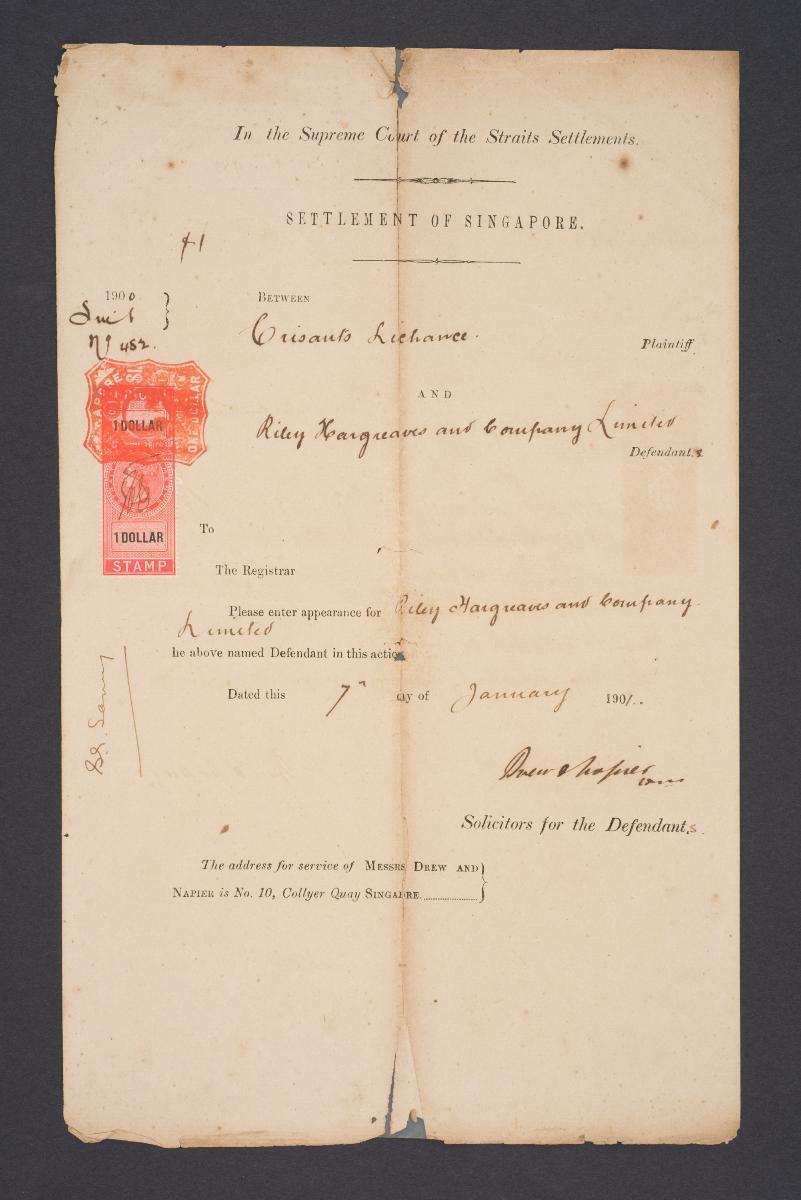 In the Supreme Court of the Straits Settlements.
SETTLEMENT OF SINGAPORE.
$1
1900 }
Suit
No 482.
BETWEEN
Crisanto Lichauco.
Plaintiff
AND
Riley Hargreaves and Company Limited
Defendant.s
ONE DOLLAR
1 DOLLAR
1 DOLLAR
STAMP
To
The Registrar
Please enter appearance for Riley Hargreaves and Company
Limited
he above named Defendant in this actio
Dated this 7th ay of January 1901..
Drew & Napier
Solicitors for the Defendant.s.
The address for service of MESSRS DREW AND }
NAPIER is No. 10, Collyer Quay SINGAPRE